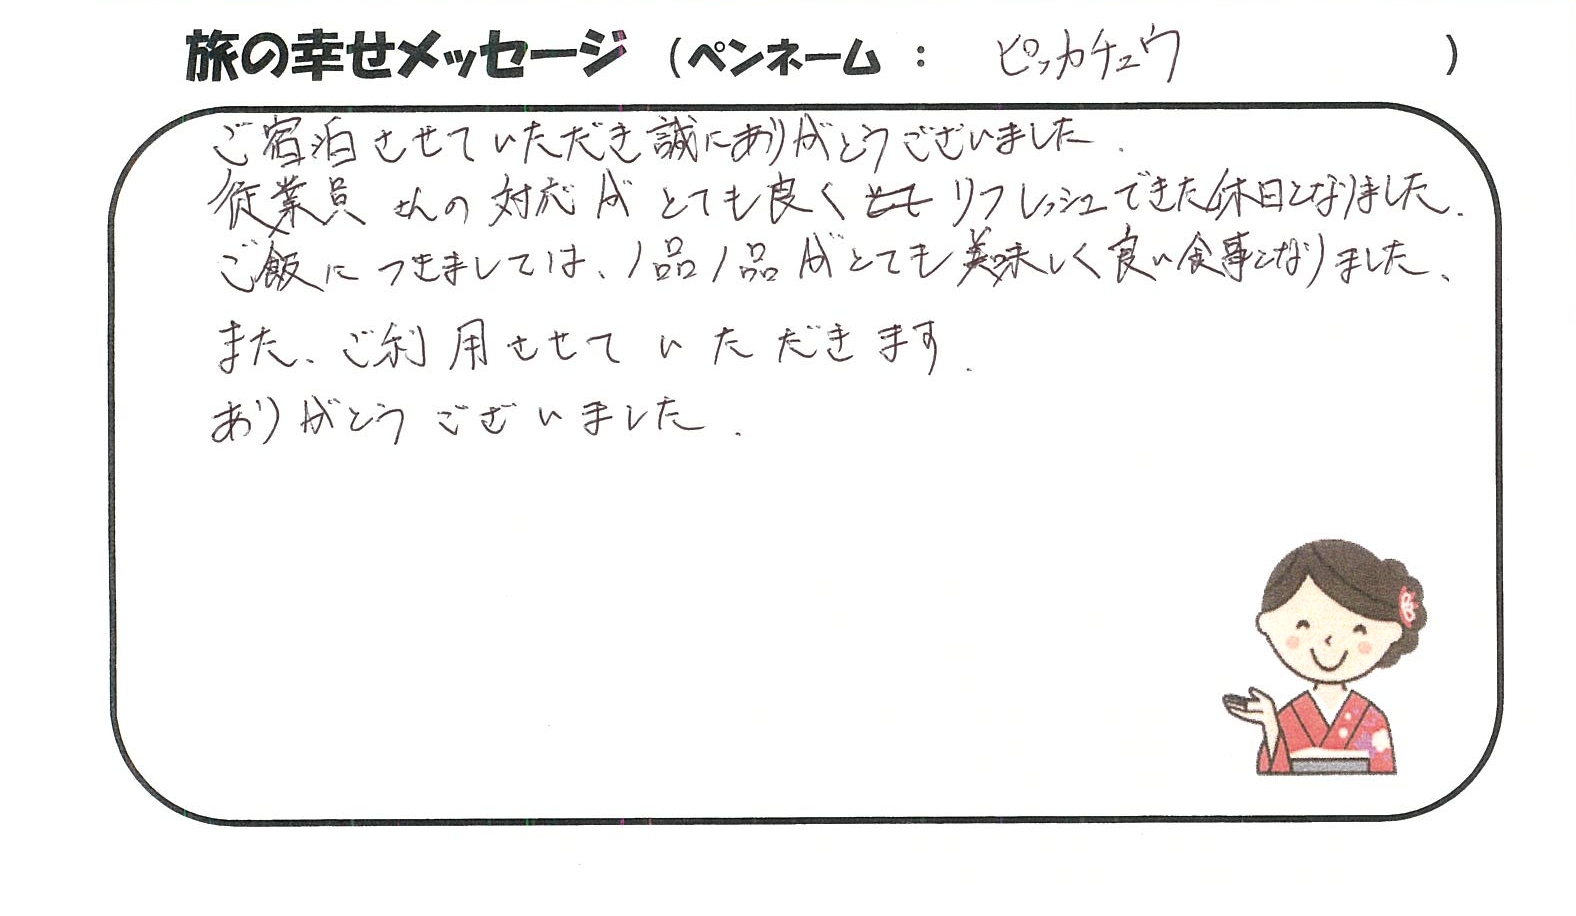 旅の幸せメッセージ (ペンネーム : ピッカチュウ )
ご宿泊させていただき誠にありがとうございました.
従業員さんの対応がとても良くリフレッシュできた休日となりました.
ご飯につきましては、1品1品がとても美味しく良い食事となりました、
また、ご利用させていただきます.
ありがとうございました.